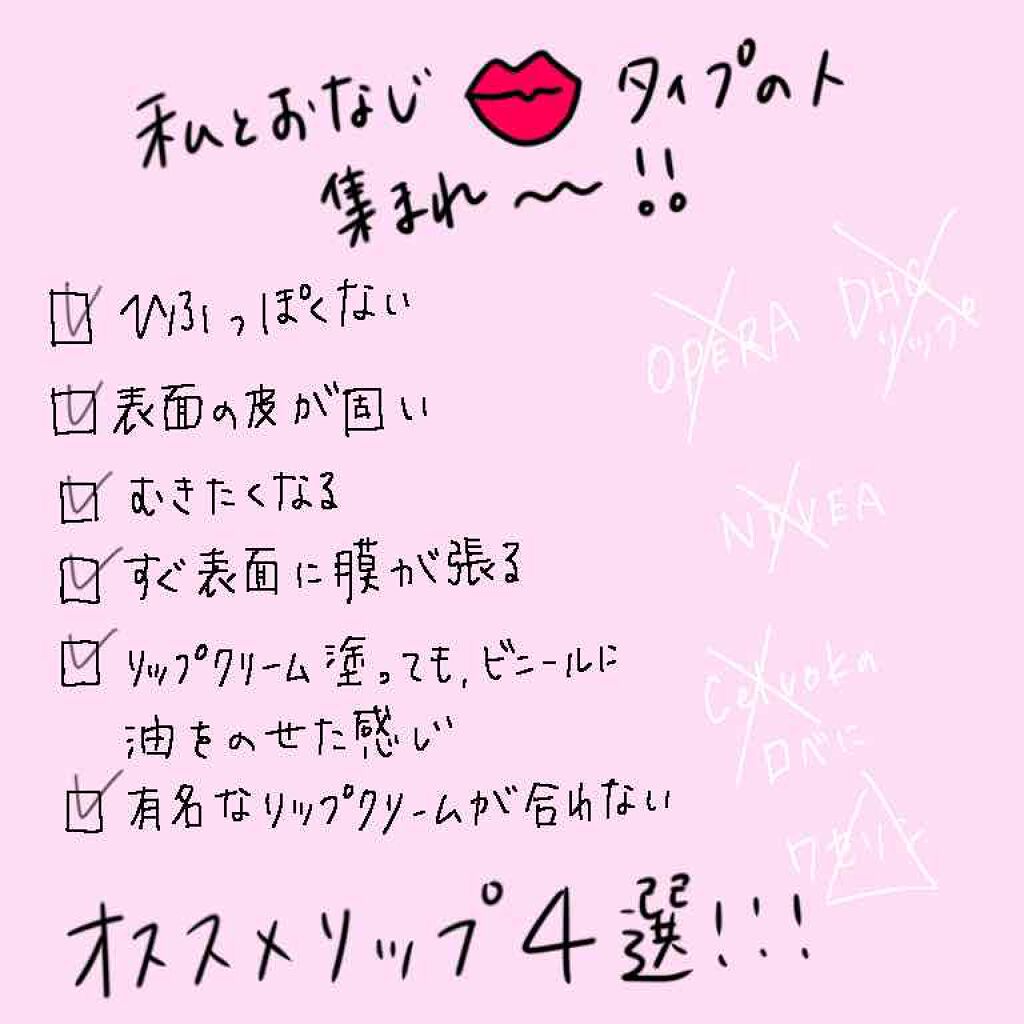 私とおなじ 💋 タイプの人
集まれ〜〜!!
ひふっぽくない
表面の皮が固い
むきたくなる
すぐ表面に膜が張る
リップクリーム塗っても、ビニールに
油をのせた感じ
有名なリップクリームが合わない
オススメリップ4選!!!
OPERA
DHC
リップ
NIVEA
Celvoke
口べに
ワセリン